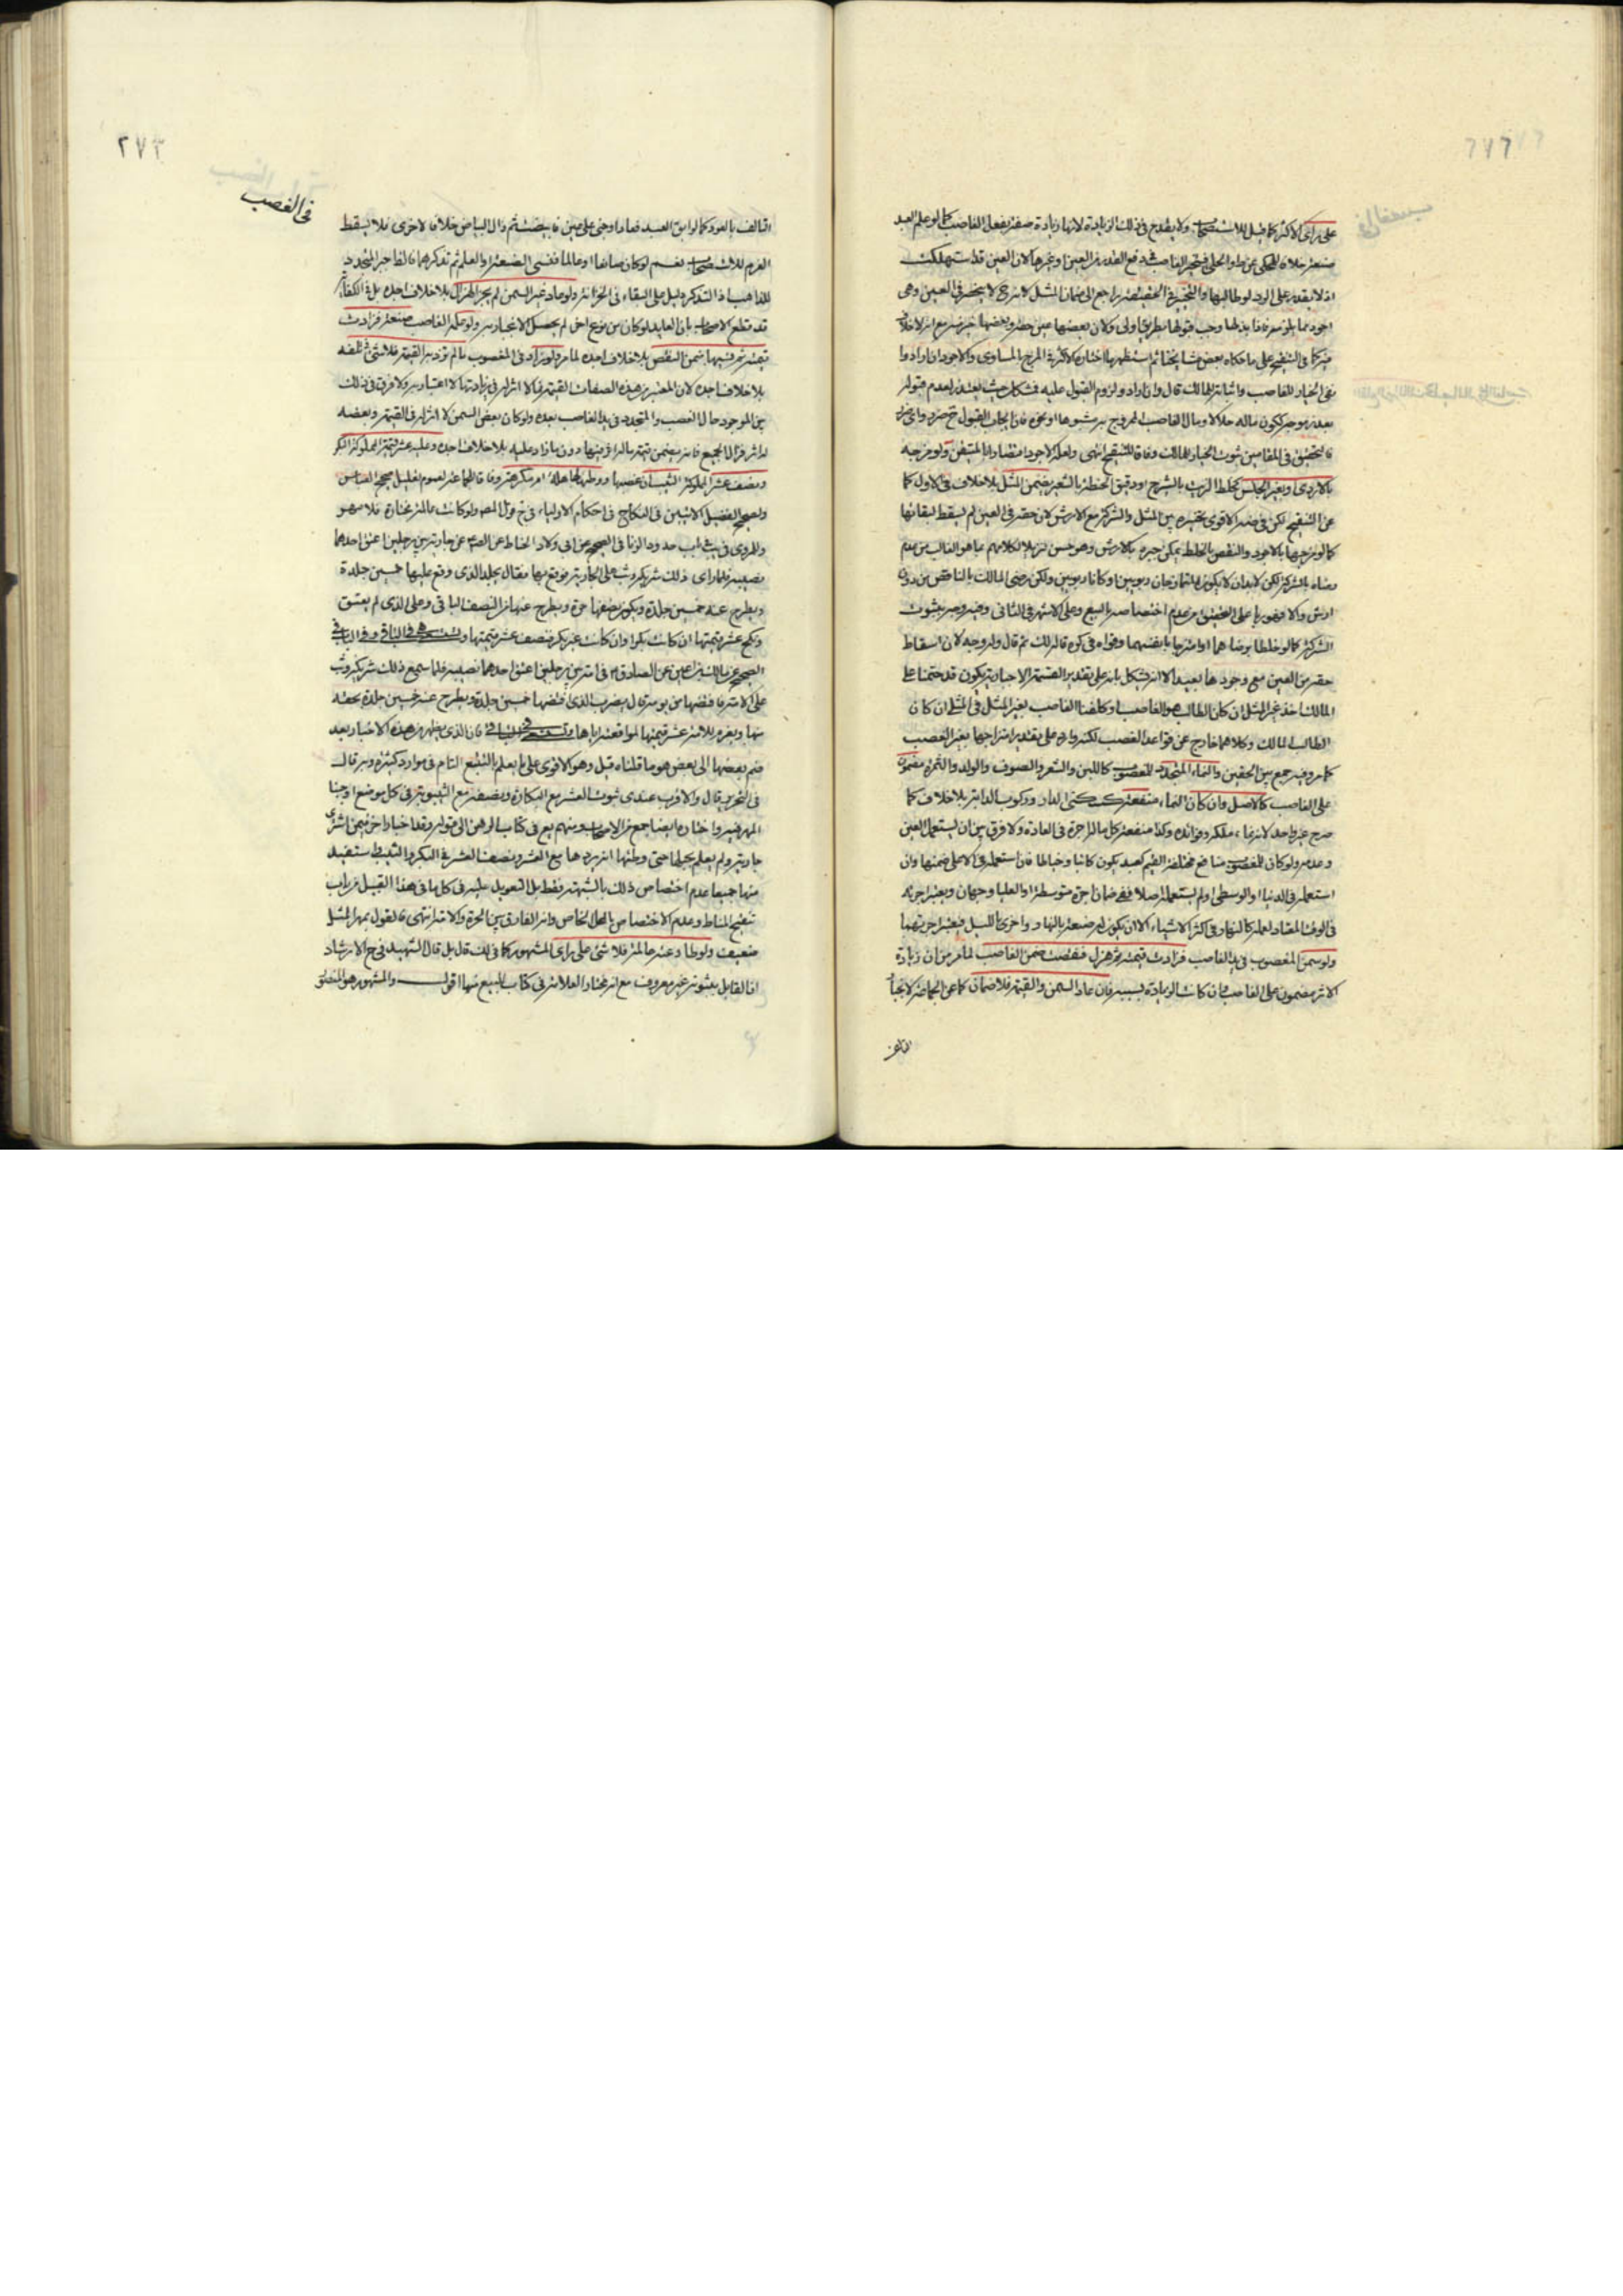 على رأى الاكثر كما قيل للاستصحاب ولا يقدح فى ذلك الزيادة لانها زيادة صفة بفعل الغاصب كما لو علم العبد
صنعة خلافا للمحكى عن ط والحلى فتخير الغاصب فى دفع القدر من العين او غيرها لان العين قد استهلكت
اذ لا يقدر على الرد لو طالبها والتخيير فى الحقيقة راجع الى ضمان المثل لانه ح لا ينحصر فى العين وهى
اجود مما يلزمه فاذا بذلها وجب قبولها بطريق اولى ولان بعضها عين حقه وبعضها خير منه مع انه لا خلاف
فيه كما فى التنقيح على ما حكاه بعض مشايخنا ثم استظهر ما اختاره الاكثر فى المزج بالمساوى والاجود ان ارادوا
نفى الخيار للغاصب واثباته للمالك قال وان اراد ولزوم القبول عليه فمشكل حيث يعتذر لعدم قبوله
بعذر موجه ككون ماله حلالا ومال الغاصب لم يمزج به مشبوها او نحوه فان ايجاب القبول ح ضرر واى ضرر
فالتحقيق فى المقامين ثبوت الخيار للمالك وفاقا للتنقيح انتهى ولعله لا جود اقتصارا بالمتيقن ولو مزجه
بالاردى او بغير الجنس كخلط الزيت بالشيرج او دقيق الحنطة بالشعير ضمن المثل بلا خلاف فى الاول كما
عن التنقيح لكن فى ضه الاقوى تخييره بين المثل والشركة مع الارش لان حقه فى العين لم يسقط لبقائها
كما لو مزجها بالاجود والنقص بالخلط يمكن جبره بالارش وهو حسن تنزيلا لكلامهم مما هو الغالب من عدم
رضاه بالشركة لكن لا بد ان لا يكون المتمازجان ربويين او كانا ربويين ولكن رضى المالك بالناقص من دون
ارش والا فهو ربا على التحقيق من عدم اختصاصه بالبيع وعلى الاشهر فى الثانى وفيه وجه بثبوت
الشركة كما لو خلطا برضاهما او امتزجا بانفسهما وقواه فى كره قاله لك ثم قال وله وجه لان اسقاط
حقه من العين مع وجودها بعيد الا انه يشكل بانه على تقدير القسمة الاجبارية يكون قد حتمنا على
المالك اخذ غير المثل ان كان الطالب هو الغاصب او كلفنا الغاصب بغير المثل فى المثلى ان كان
الطالب المالك وكلاهما خارج عن قواعد الغصب لكنه وارد على تقدير امتزاجها بغير الغصب
كما مر وفيه جمع بين الحقين والنماء المتجدد للمغصوب كاللبن والشعر والصوف والولد والثمرة مضمون
على الغاصب كالاصل وان كان النماء منفعة كسكنى الدار وركوب الدابة بلا خلاف كما
صرح غير واحد لانه نماء ملكه وفوائده وكذا منفعة كل ما له اجرة فى العادة ولا فرق بين ان يستعمل العين
وعدمه ولو كان للمغصوب منافع مختلفة القيم كعبد يكون كاتبا وخياطا فان استعمله فى الاعلى ضمنها وان
استعمله فى الدنيا او الوسطى او لم يستعمله اصلا ففى ضمان اجرة متوسطة او العليا وجهان ويعتبر اجرته
فى الوقت المعتاد لعمله كالنهار فى اكثر الاشياء الا ان يكون له صنعة بالنهار واخرى بالليل فيعتبر اجرتهما
ولو سمن المغصوب فى يد الغاصب فزادت قيمته ثم هزل فنقصت ضمن الغاصب لما مر من ان زيادة
الاثر مضمون على الغاصب وان كانت الزيادة بسببه فان عاد السمن والقيمة فلا ضمان كما عن الجماعة لانجبار
التالف
٢٧٣
فى الغصب
التالف بالعود كما لو ابق العبد فعاد او جنى على عين فابيضت ثم زال البياض خلافا لاخرى فلا يسقط
الغرم للاستصحاب نعم لو كان صانعا او عالما فنسى الصنعة او العلم ثم تذكرهما فالظاهر المتجدد
للذاهب اذ التذكر دليل على البقاء فى الخزانة ولو عاد غير السمن لم يجز الهزال بلا خلاف اجده بل فى الكفاية
قد قطع الاصحاب بان العايد لو كان من نوع اخر لم يحصل الانجبار به ولو علمه الغاصب صنعة فزادت
قيمته ثم نسيها ضمن النقص بلا خلاف اجده لما مر ولو زاد فى المغصوب ما لم تزد به القيمة فلا شئ فى تلفه
بلا خلاف اجده لان المعتبر من هذه الصفات القيمة فما لا اثر له فى زيادتها لا اعتبار به ولا فرق فى ذلك
بين الموجود حال الغصب والمتجدد فى يد الغاصب بعده ولو كان بعض السمن لا اثر له فى القيمة وبعضه
له اثر فزال الجميع فانه يضمن قيمة ماله اثر فيها دون ما زاد عليه بلا خلاف اجده وعليه عشر قيمة المملوكة البكر
ونصف عشر المملوكة الثيب ان غصبها ووطئها جاهلة او مكرهة وفاقا لجماعة لعموم تعليل صحيح العباس
ولصحيح الفضيل الاتيين فى النكاح فى احكام الاولياء فى ح قول المص ولو كانت عالمة مختارة فلا مهر
والمروى فى يب فى باب حدود الزنا فى الصحيح عن ابى ولاد الحناط عن الصه عن جارية بين رجلين اعتق احدهما
نصيبه فلما راى ذلك شريكه وثب على الجارية فوقع بها فقال يجلد الذى وقع عليها خمسين جلدة
ويطرح عنه خمسين جلدة ويكون نصفها حرة ويطرح عنها من النصف الباقى وعلى الذى لم يعتق
ونكح عشر قيمتها ان كانت بكرا وان كانت غير بكر فنصف عشر قيمتها وتستسعى فى الباقى
الصحيح عن مالك بن اعين عن الصادق ع فى امة بين رجلين اعتق احدهما نصيبه فلما سمع ذلك شريكه وثب
على الامة فاقتضها من يومه قال يضرب الذى اقتضها خمسين جلدة ويطرح عنه خمسين جلدة بحقه
منها ويغرم للامة عشر قيمتها لمواقعته اياها وتستسعى فى الباقى فان الذى يظهر من هذه الاخبار بعد
ضم بعضها الى بعض هو ما قلناه قبل وهو الاقوى على ما يعلم بالتتبع التام فى موارد كثيرة وبه قال
فى التحرير قال والاقرب عندى ثبوت العشر مع البكارة ونصفه مع الثيبوبة فى كل موضع اوجبنا
المهر فيه واختاره ايضا جمع من الاصحاب ومنهم يع فى كتاب الرهن الى قوله وقد اخبار اخر فيمن اشترى
جارية ولم يعلم بحبلها حتى وطئها انه يردها مع العشر ونصف العشر فى البكر والثيب يستفيد
منها جميعا عدم اختصاص ذلك بالشبهة فقط بل التعويل عليه فى كل ما فى هذا القبيل من باب
تنقيح المناط وعدم الاختصاص بالمحل الخاص وانه الفارق بين الحرة والامة انتهى فالقول بمهر المثل
ضعيف ولو طاوعته عالمة فلا شئ على راى المشهور كما فى لك قال بل قال الشهيد فى ح الارشاد
ان القايل بثبوته غير معروف مع انه مختار العلامة فى كتاب البيع منها اقول والمشهور هو المنصوص